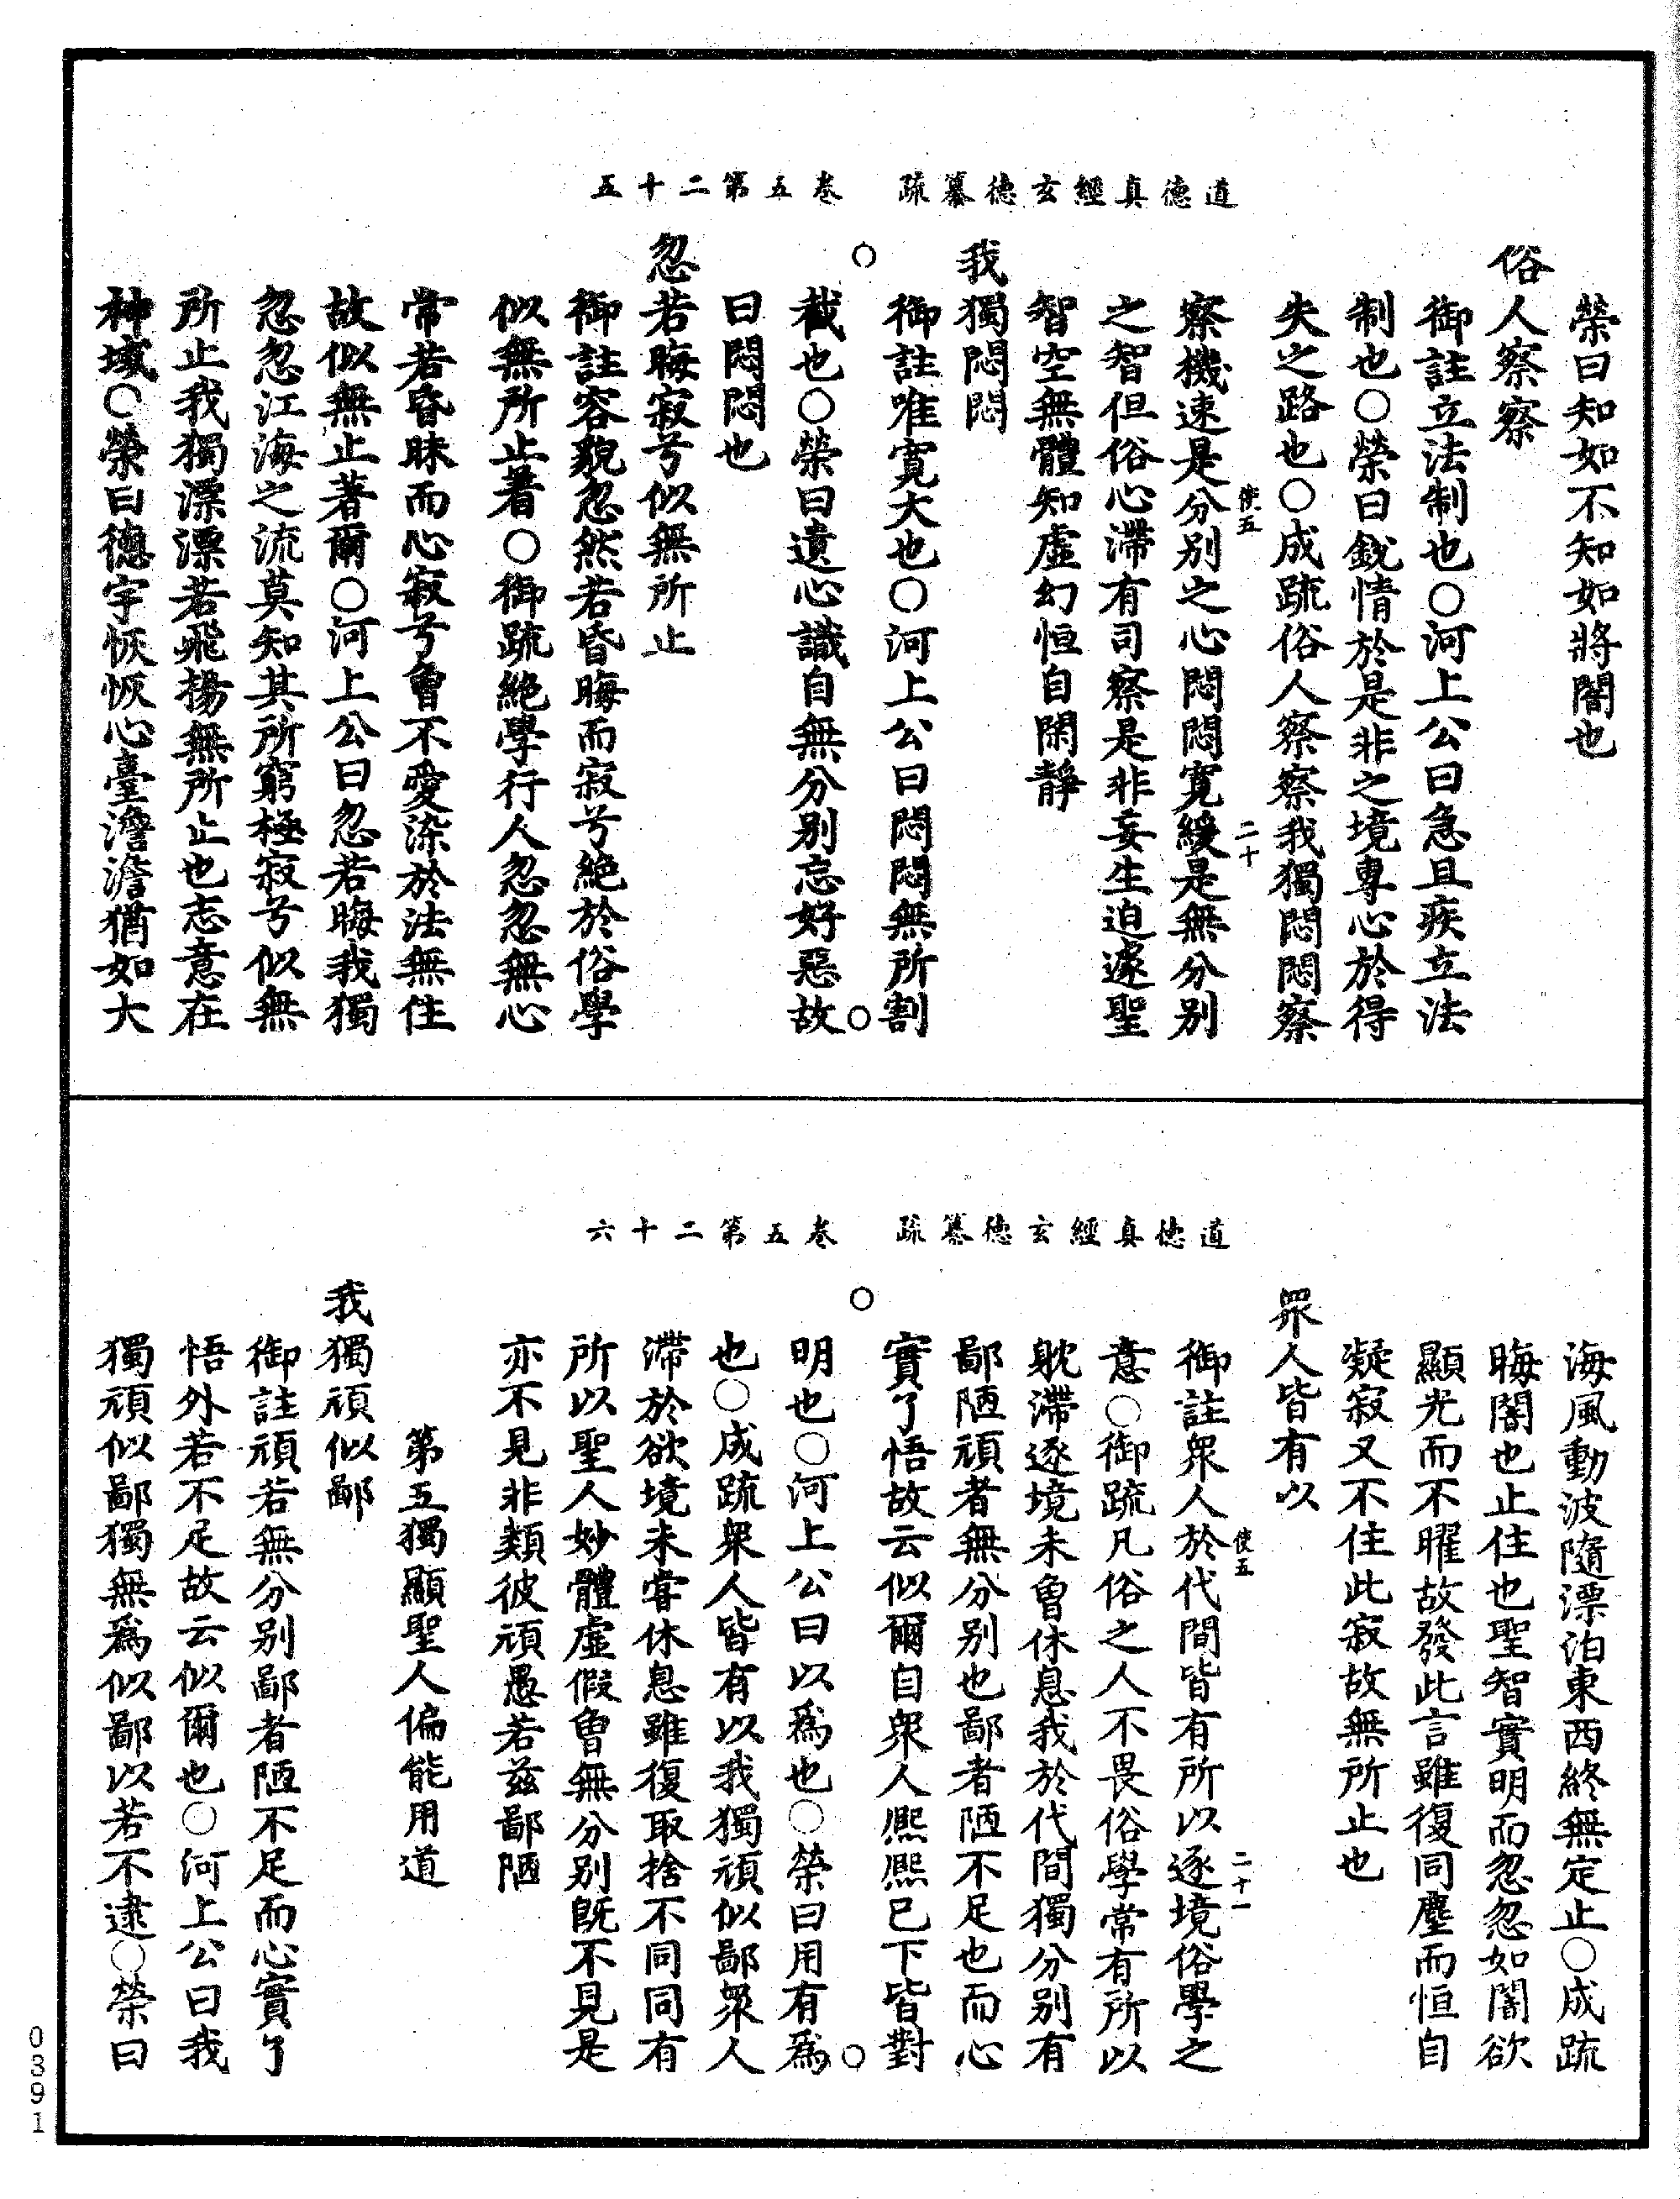 道德真經玄德纂疏 卷五第二十五
榮曰知如不知如將闇也
俗人察察
御註立法制也○河上公曰急且疾立法
制也○榮曰銳情於是非之境專心於得
失之路也○成疏俗人察察我獨悶悶察
使五 二十
察機速是分別之心悶悶寬緩是無分別
之智但俗心滯有司察是非妄生迫遽聖
智空無體知虛幻恒自閑靜
我獨悶悶
御註唯寬大也○河上公曰悶悶無所割
截也○榮曰遺心識自無分別忘好惡故
曰悶悶也
忽若晦寂兮似無所止
御註容貌忽然若昏晦而寂兮絕於俗學
似無所止著○御疏絕學行人忽忽無心
常若昏昧而心寂兮曾不愛染於法無住
故似無止著爾○河上公曰忽若晦我獨
忽忽江海之流莫知其所窮極寂兮似無
所止我獨漂漂若飛揚無所止也志意在
神域○榮曰德宇恢恢心臺澹澹猶如大
道德真經玄德纂疏 卷五第二十六
海風動波隨漂泊東西終無定止○成疏
晦闇也止住也聖智實明而忽忽如闇欲
顯光而不曜故發此言雖復同塵而恒自
凝寂又不住此寂故無所止也
眾人皆有以
使五 二十一
御註眾人於代間皆有所以逐境俗學之
意○御疏凡俗之人不畏俗學常有所以
躭滯逐境未曾休息我於代間獨分別有
鄙陋頑者無分別也鄙者陋不足也而心
實了悟故云似爾自眾人熙熙已下皆對
明也○河上公曰以為也○榮曰用有為
也○成疏眾人皆有以我獨頑似鄙眾人
滯於欲境未甞休息雖復取捨不同同有
所以聖人妙體虛假曾無分別既不見是
亦不見非類彼頑愚若茲鄙陋
第五獨顯聖人偏能用道
我獨頑似鄙
御註頑若無分別鄙者陋不足而心實了
悟外若不足故云似爾也○河上公曰我
獨頑似鄙獨無為似鄙以若不逮○榮曰
0391